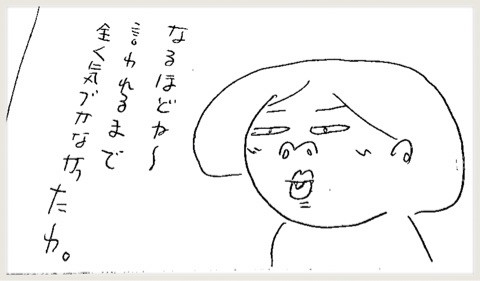 なるほどね〜
言われるまで
全く気づかなかったわ。